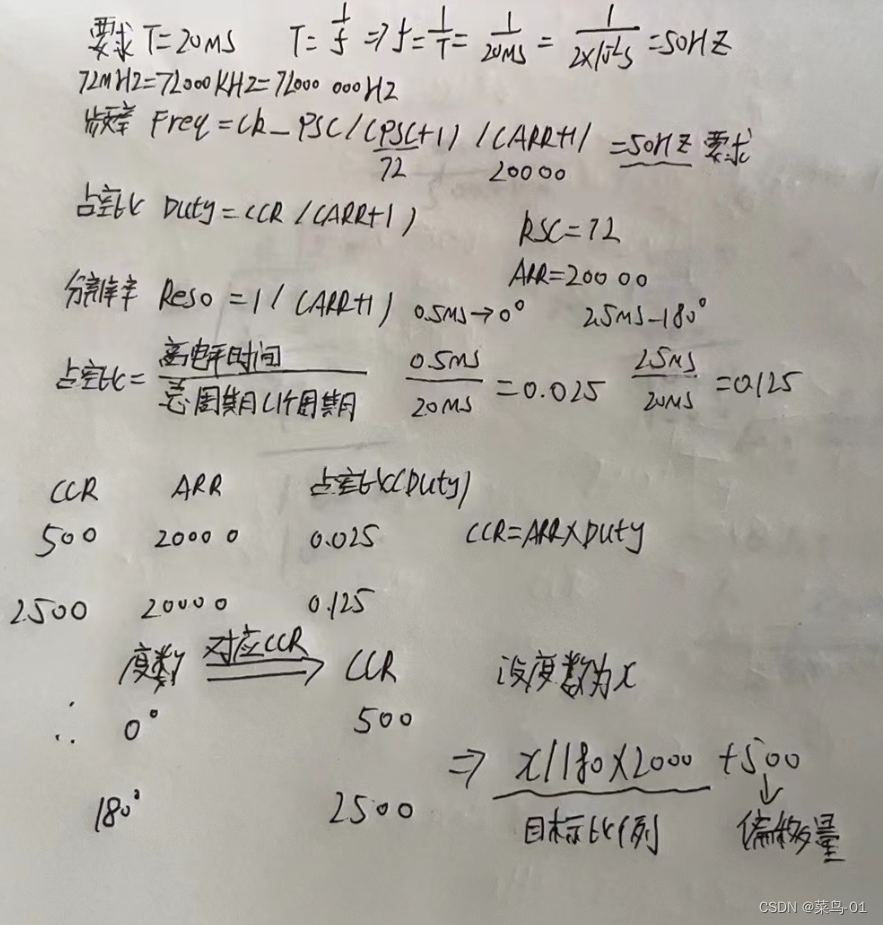 要求 T=20MS T=1/f ⇒ f=1/T=1/20MS=1/2X10⁻²S=50HZ
72MHZ=72000KHZ=72000 000HZ
频率 Freq=CK_PSC/(PSC+1)/(ARR+1) =50HZ 要求
72 20000
占空比 Duty=CCR/(ARR+1)
PSC=72
ARR=20000
分辨率 Reso=1/(ARR+1) 0.5MS→0° 2.5MS-180°
占空比=高电平时间/总周期(1个周期) 0.5MS/20MS=0.025 2.5MS/20MS=0.125
CCR ARR 占空比(Duty)
500 20000 0.025 CCR=ARRXDuty
2500 20000 0.125
度数 对应CCR CCR 设度数为x
∴ 0° 500
⇒ x/180X2000+500
180° 2500
目标比例 偏移量
CSDN @菜鸟-01